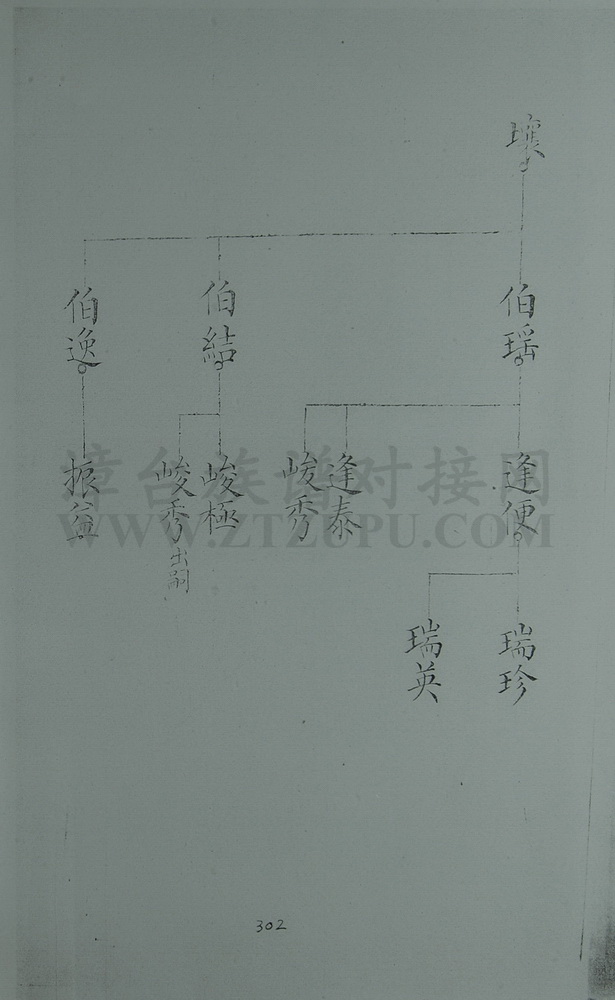 壤
伯瑶
伯結
伯逸
逢便
逢泰
峻秀
峻極
峻秀出嗣
振益
瑞珍
瑞英
漳台族谱对接网
WWW.ZTZUPU.COM
302